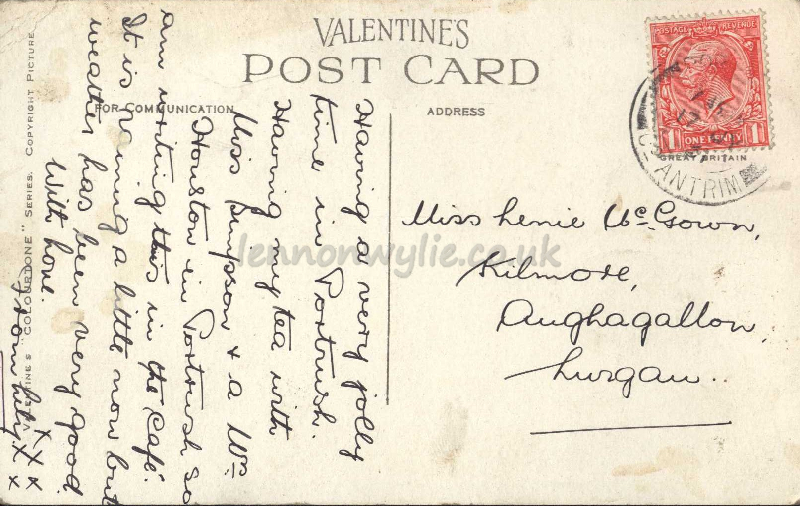 VALENTINE'S
POST CARD
FOR COMMUNICATION
ADDRESS
POSTAGE REVENUE
1 ONE PENNY 1
GREAT BRITAIN
CO. ANTRIM
Miss Lenie McGown,
Kilmore,
Aughagallon,
Lurgan.
Having a very jolly
time in Portrush.
Having my tea with
Miss Simpson & a Mrs
Houston in Portrush so
am writing this in the Café.
It is raining a little now but
weather has been very good.
With love.
from Lily
x x x
x x
"COLOURTONE" SERIES. COPYRIGHT PICTURE.
lennonwylie.co.uk